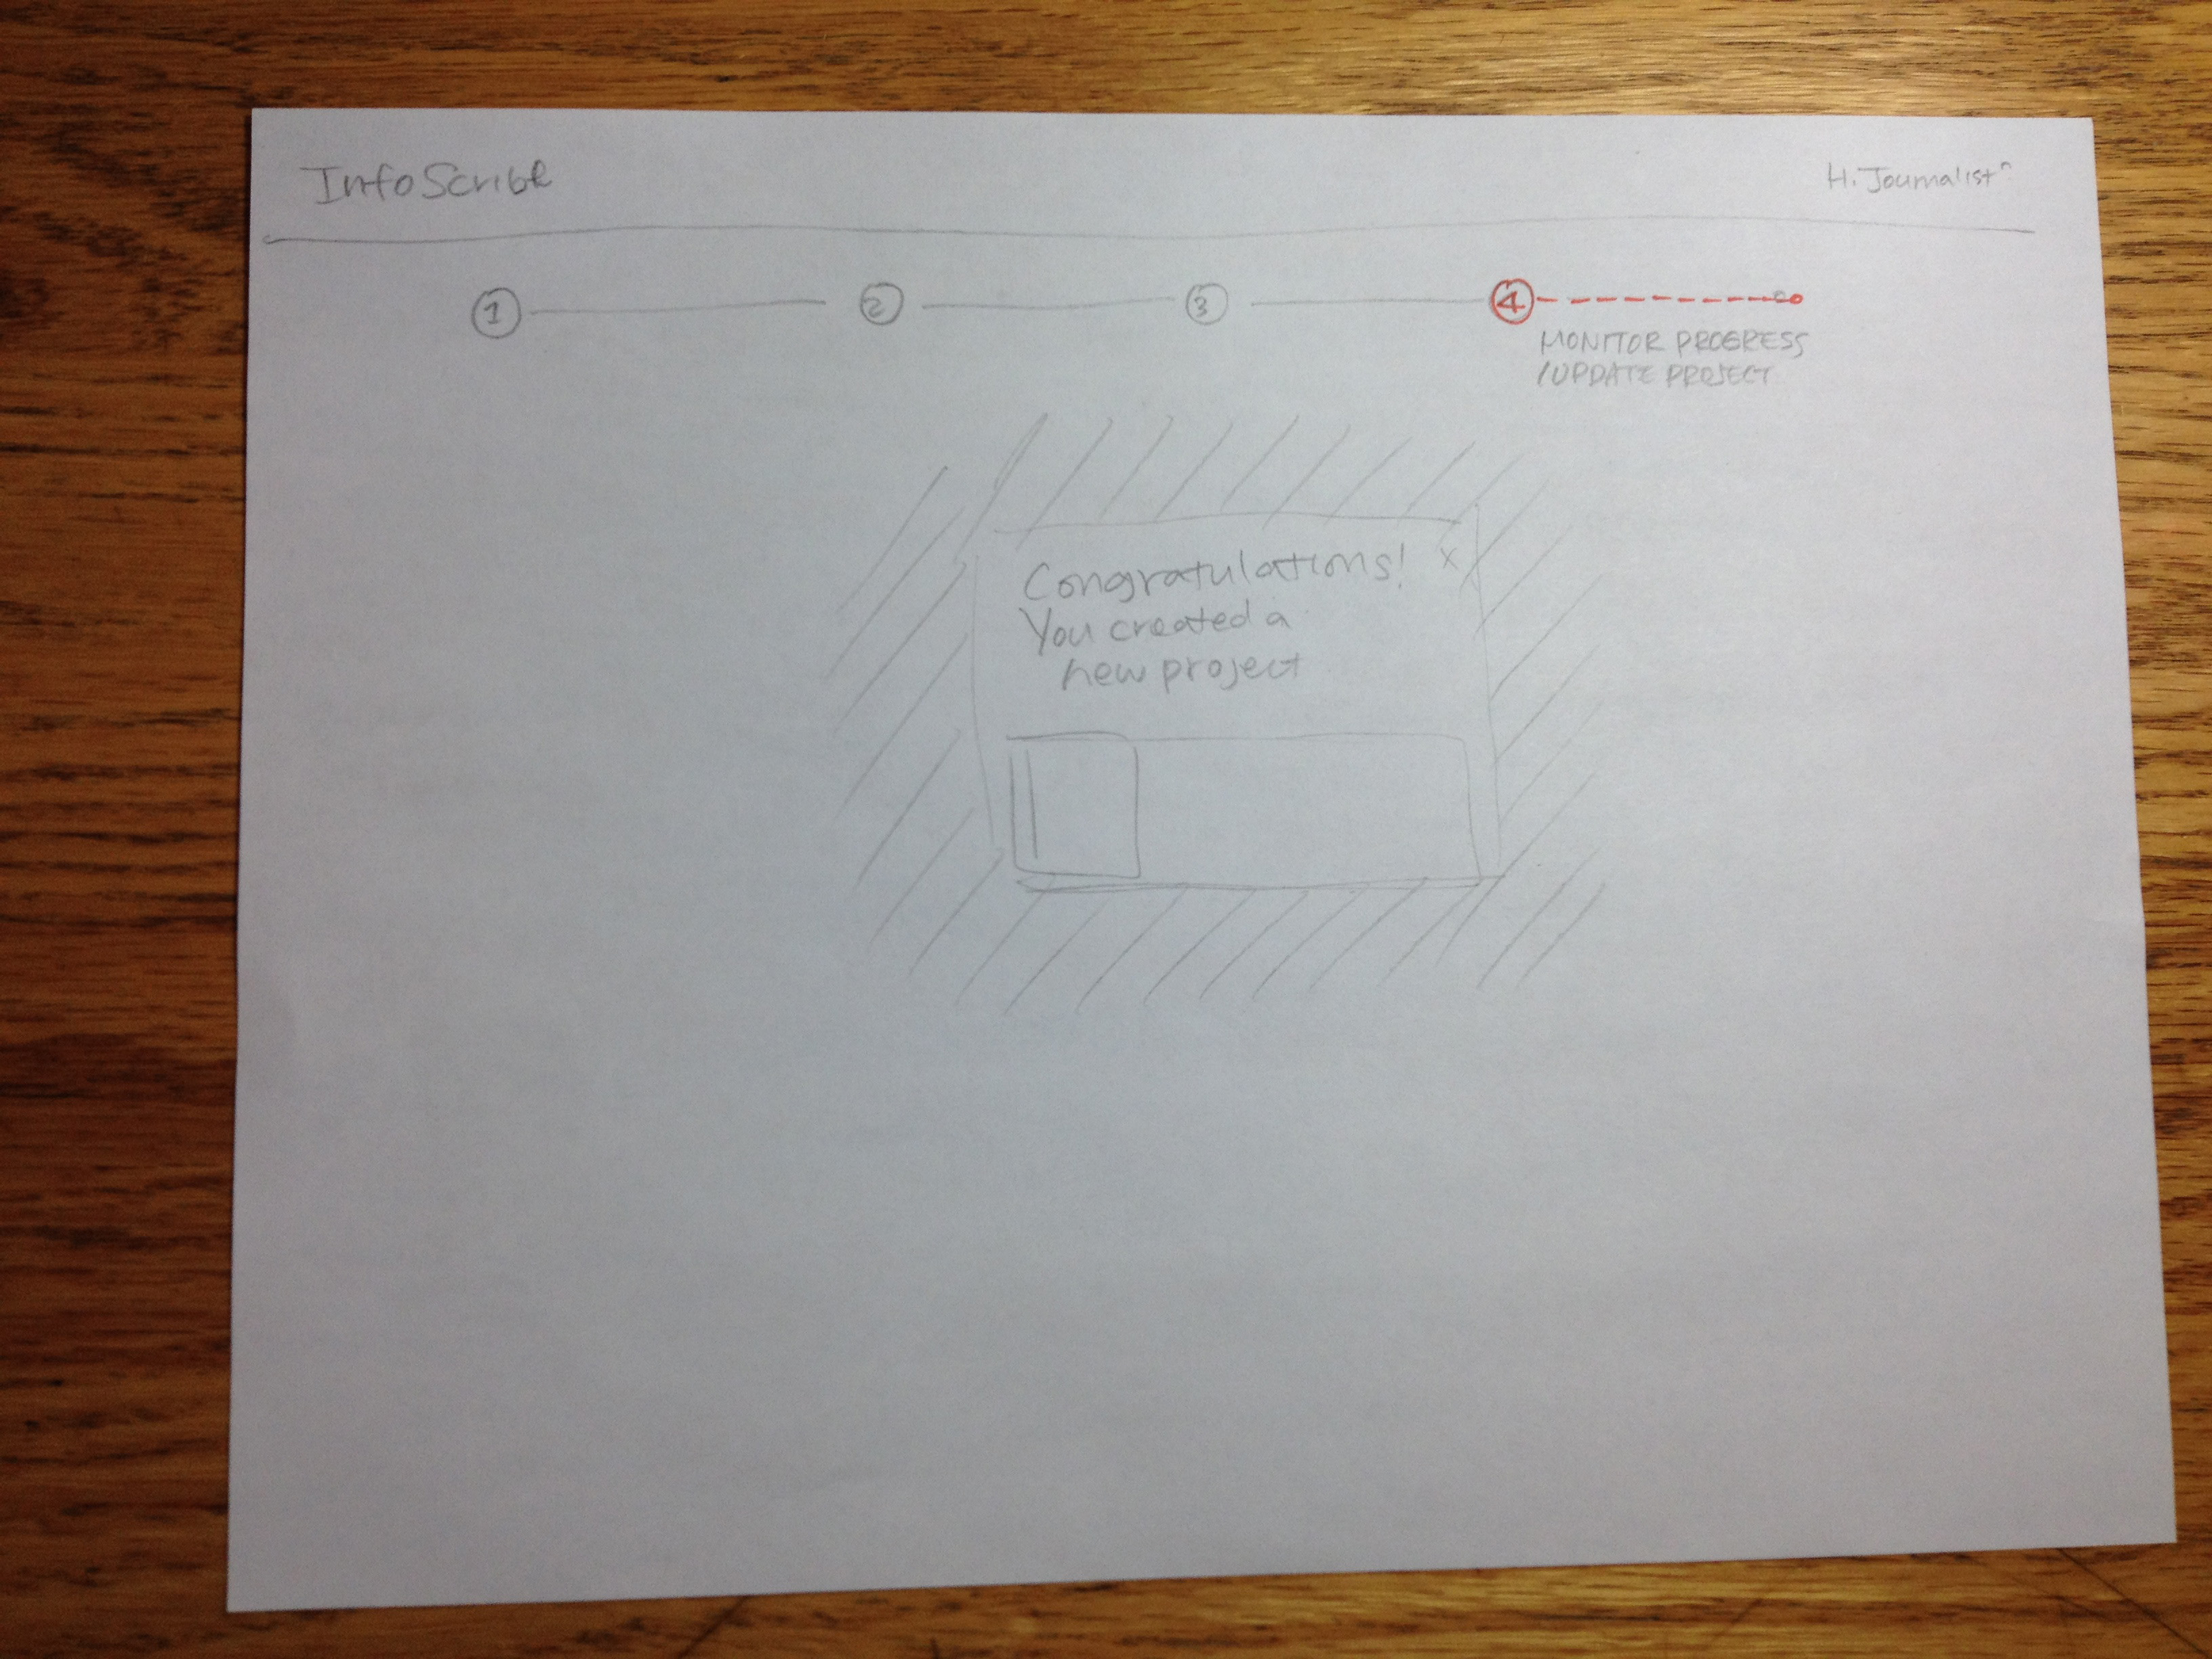 InfoScribe
H. Journalist
1
2
3
4
MONITOR PROGRESS
/UPDATE PROJECT
Congratulations! X
You created a
new project